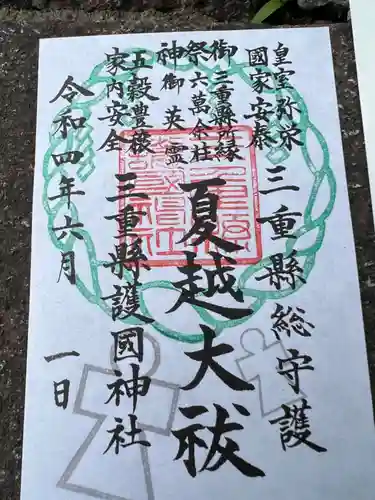 皇室弥栄
國家安泰
三重縣総守護
御三重縣所縁
祭六萬余柱
神御英霊
夏越大祓
五穀豊穣
家内安全
三重縣護國神社
令和四年六月一日